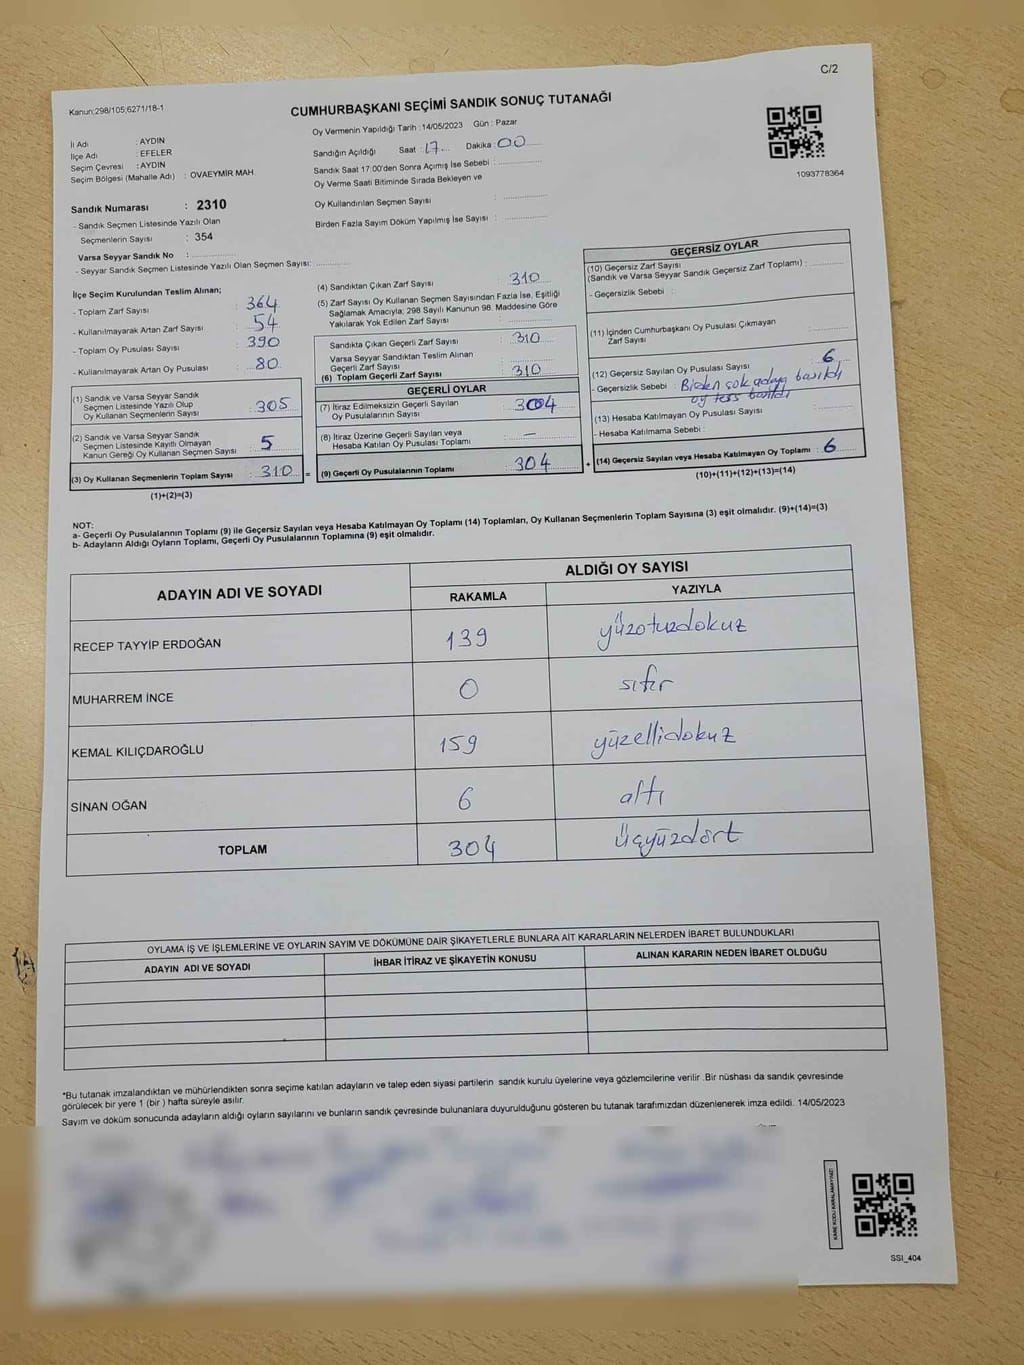 C/2
Kanun:298/105;6271/18-1
CUMHURBAŞKANI SEÇİMİ SANDIK SONUÇ TUTANAĞI
Oy Vermenin Yapıldığı Tarih :14/05/2023 Gün : Pazar
İl Adı : AYDIN
İlçe Adı : EFELER
Seçim Çevresi : AYDIN
Seçim Bölgesi (Mahalle Adı) : OVAEYMİR MAH.
Sandığın Açıldığı Saat : 17... Dakika : 00
Sandık Saat 17:00'den Sonra Açımış İse Sebebi :
Oy Verme Saati Bitiminde Sırada Bekleyen ve
Oy Kullandırılan Seçmen Sayısı :
Birden Fazla Sayım Döküm Yapılmış İse Sayısı :
1093778364
Sandık Numarası : 2310
- Sandık Seçmen Listesinde Yazılı Olan
Seçmenlerin Sayısı : 354
Varsa Seyyar Sandık No :
- Seyyar Sandık Seçmen Listesinde Yazılı Olan Seçmen Sayısı:
İlçe Seçim Kurulundan Teslim Alınan;
- Toplam Zarf Sayısı : 364
- Kullanılmayarak Artan Zarf Sayısı : 54
- Toplam Oy Pusulası Sayısı : 390
- Kullanılmayarak Artan Oy Pusulası : 80
(1) Sandık ve Varsa Seyyar Sandık
Seçmen Listesinde Yazılı Olup
Oy Kullanan Seçmenlerin Sayısı : 305
(2) Sandık ve Varsa Seyyar Sandık
Seçmen Listesinde Kayıtlı Olmayan
Kanun Gereği Oy Kullanan Seçmen Sayısı : 5
(3) Oy Kullanan Seçmenlerin Toplam Sayısı : 310 =
(1)+(2)=(3)
(4) Sandıktan Çıkan Zarf Sayısı : 310
(5) Zarf Sayısı Oy Kullanan Seçmen Sayısından Fazla İse, Eşitliği
Sağlamak Amacıyla; 298 Sayılı Kanunun 98. Maddesine Göre
Yakılarak Yok Edilen Zarf Sayısı :
Sandıkta Çıkan Geçerli Zarf Sayısı : 310
Varsa Seyyar Sandıktan Teslim Alınan
Geçerli Zarf Sayısı :
(6) Toplam Geçerli Zarf Sayısı : 310
GEÇERLİ OYLAR
(7) İtiraz Edilmeksizin Geçerli Sayılan
Oy Pusulalarının Sayısı : 304
(8) İtiraz Üzerine Geçerli Sayılan veya
Hesaba Katılan Oy Pusulası Toplamı : —
(9) Geçerli Oy Pusulalarının Toplamı : 304 +
GEÇERSİZ OYLAR
(10) Geçersiz Zarf Sayısı
(Sandık ve Varsa Seyyar Sandık Geçersiz Zarf Toplamı) :
- Geçersizlik Sebebi :
(11) İçinden Cumhurbaşkanı Oy Pusulası Çıkmayan
Zarf Sayısı :
(12) Geçersiz Sayılan Oy Pusulası Sayısı : 6
- Geçersizlik Sebebi : Birden çok adaya basıldı
oy ters basıldı
(13) Hesaba Katılmayan Oy Pusulası Sayısı :
- Hesaba Katılmama Sebebi :
(14) Geçersiz Sayılan veya Hesaba Katılmayan Oy Toplamı : 6
(10)+(11)+(12)+(13)=(14)
NOT:
a- Geçerli Oy Pusulalarının Toplamı (9) ile Geçersiz Sayılan veya Hesaba Katılmayan Oy Toplamı (14) Toplamları, Oy Kullanan Seçmenlerin Toplam Sayısına (3) eşit olmalıdır. (9)+(14)=(3)
b- Adayların Aldığı Oyların Toplamı, Geçerli Oy Pusulalarının Toplamına (9) eşit olmalıdır.
ADAYIN ADI VE SOYADI ALDIĞI OY SAYISI
RAKAMLA YAZIYLA
RECEP TAYYİP ERDOĞAN 139 yüzotuzdokuz
MUHARREM İNCE 0 sıfır
KEMAL KILIÇDAROĞLU 159 yüzellidokuz
SİNAN OĞAN 6 altı
TOPLAM 304 üçyüzdört
OYLAMA İŞ VE İŞLEMLERİNE VE OYLARIN SAYIM VE DÖKÜMÜNE DAİR ŞİKAYETLERLE BUNLARA AİT KARARLARIN NELERDEN İBARET BULUNDUKLARI
ADAYIN ADI VE SOYADI İHBAR İTİRAZ VE ŞİKAYETİN KONUSU ALINAN KARARIN NEDEN İBARET OLDUĞU
*Bu tutanak imzalandıktan ve mühürlendikten sonra seçime katılan adayların ve talep eden siyasi partilerin sandık kurulu üyelerine veya gözlemcilerine verilir .Bir nüshası da sandık çevresinde
görülecek bir yere 1 (bir ) hafta süreyle asılır.
Sayım ve döküm sonucunda adayların aldığı oyların sayılarını ve bunların sandık çevresinde bulunanlara duyurulduğunu gösteren bu tutanak tarafımızdan düzenlenerek imza edildi. 14/05/2023
KARE KODU KARALAMAYINIZ!
SSI_404